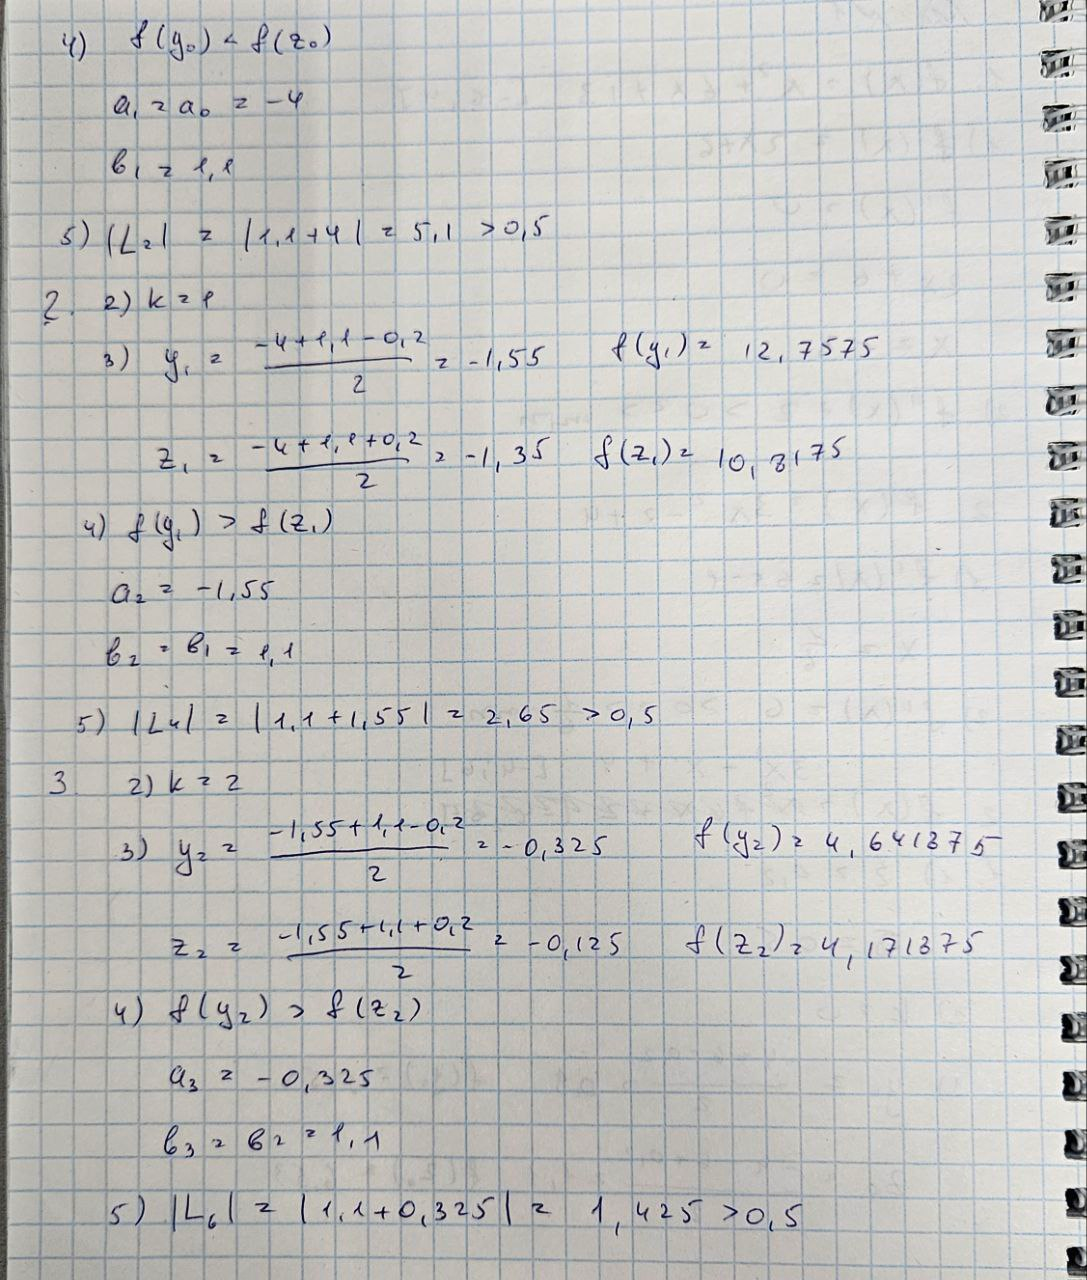 4) f(y₀) < f(z₀)
a₁ = a₀ = -4
b₁ = 1,1
5) |L₂| = |1,1+4| = 5,1 > 0,5
2. 2) k = 1
3) y₁ = (-4+1,1-0,2)/2 = -1,55 f(y₁) = 12,7575
z₁ = (-4+1,1+0,2)/2 = -1,35 f(z₁) = 10,8175
4) f(y₁) > f(z₁)
a₂ = -1,55
b₂ = b₁ = 1,1
5) |L₄| = |1,1+1,55| = 2,65 > 0,5
3. 2) k = 2
3) y₂ = (-1,55+1,1-0,2)/2 = -0,325 f(y₂) = 4,641875
z₂ = (-1,55+1,1+0,2)/2 = -0,125 f(z₂) = 4,171875
4) f(y₂) > f(z₂)
a₃ = -0,325
b₃ = b₂ = 1,1
5) |L₆| = |1,1+0,325| = 1,425 > 0,5